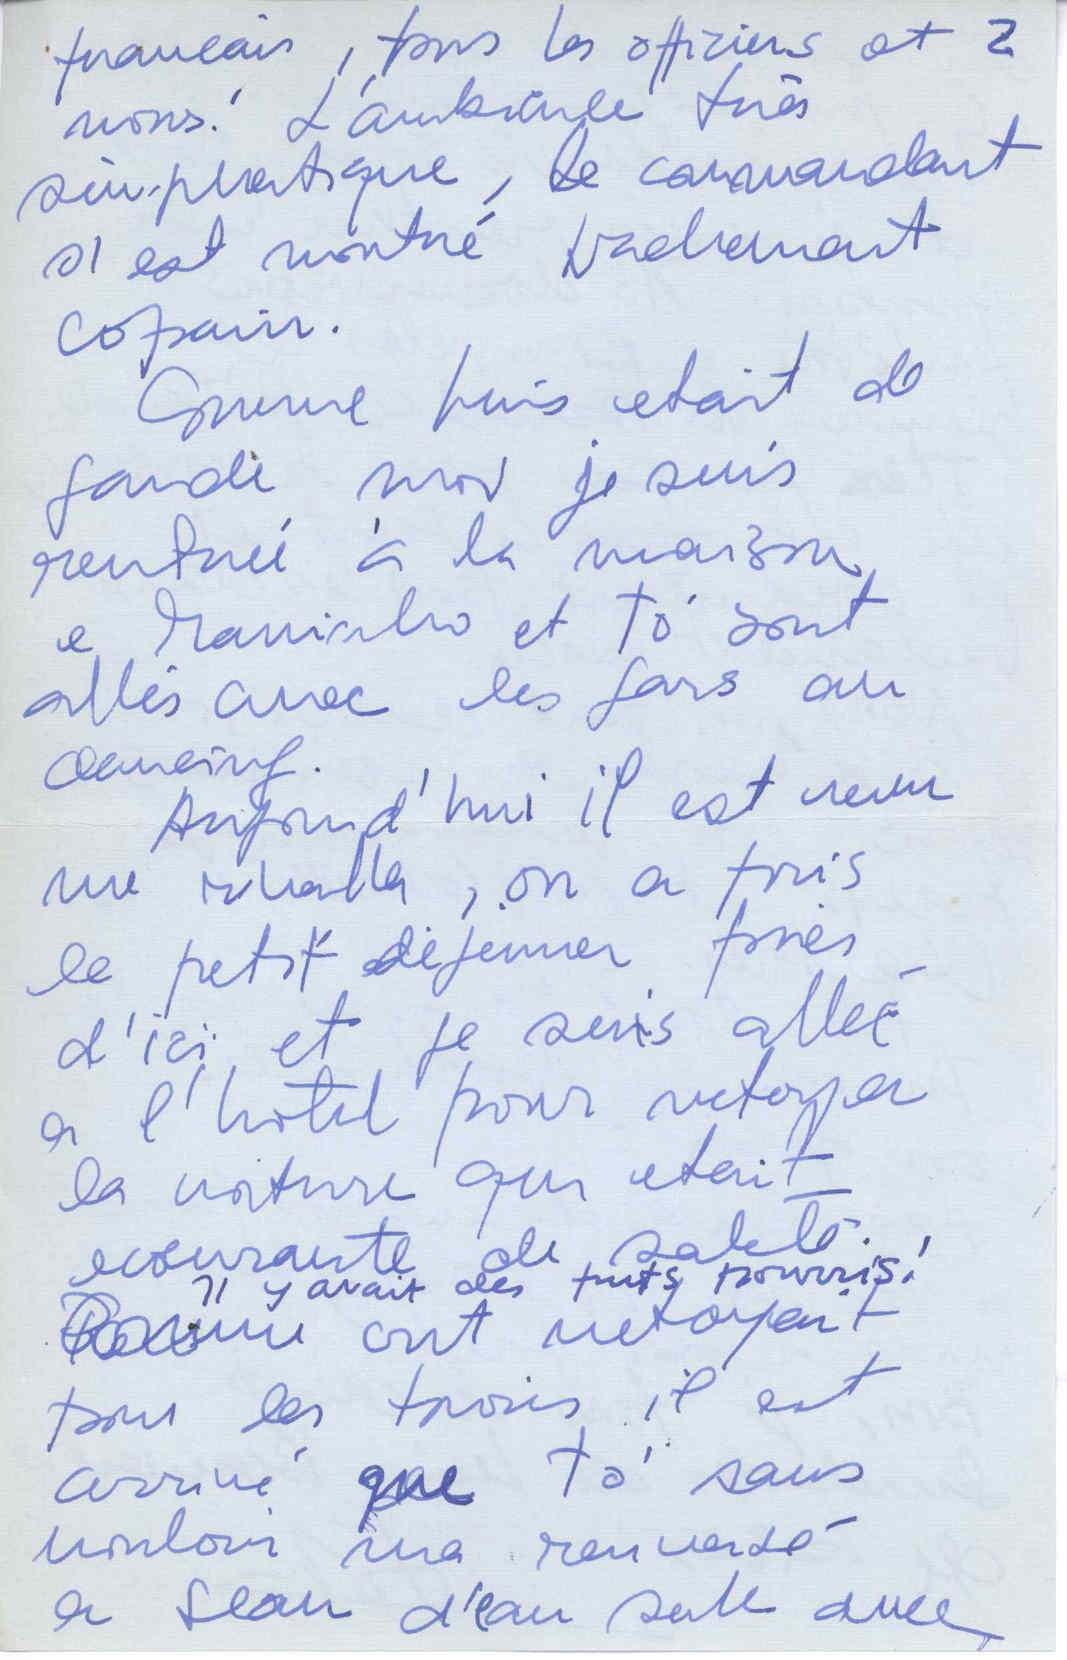 français, tous les officiers et 2
nous! L'ambiance très
simphatique, le commandant
s'est montré vachement
copain.
Comme Luis etait de
garde moi je suis
rentreé à la maison
e Maninho et Tó sont
allés avec les gars au
dancing.
Aujourd'hui il est venu
me , on a pris
le petit dejeuner près
d'ici et je suis alleé
a l'hôtel pour netoyer
la voiture que etait
ecoeurante de saleté.
Il y avait des fruits pourris!
Comme ont netoyait
tous les trois il est
arrivé que Tó sans
vouloir ma renversé
le seau d'eau sale avec